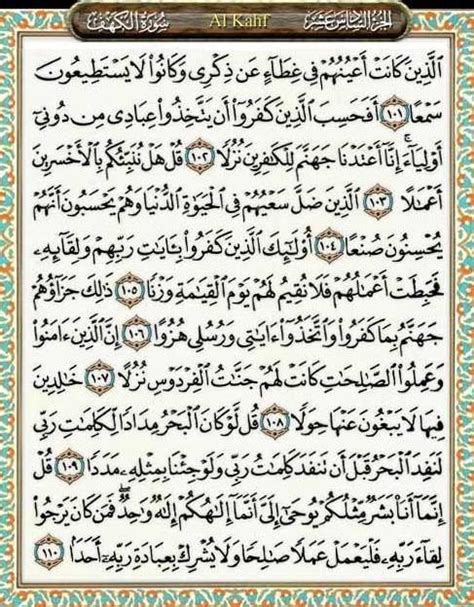 الجزء السادس عشر Al Kahf سورة الكهف
الَّذِينَ كَانَتْ أَعْيُنُهُمْ فِي غِطَاءٍ عَن ذِكْرِي وَكَانُوا لَا يَسْتَطِيعُونَ
سَمْعًا ١٠١ أَفَحَسِبَ الَّذِينَ كَفَرُوا أَن يَتَّخِذُوا عِبَادِي مِن دُونِي
أَوْلِيَاءَ ۚ إِنَّا أَعْتَدْنَا جَهَنَّمَ لِلْكَافِرِينَ نُزُلًا ١٠٢ قُلْ هَلْ نُنَبِّئُكُم بِالْأَخْسَرِينَ
أَعْمَالًا ١٠٣ الَّذِينَ ضَلَّ سَعْيُهُمْ فِي الْحَيَاةِ الدُّنْيَا وَهُمْ يَحْسَبُونَ أَنَّهُمْ
يُحْسِنُونَ صُنْعًا ١٠٤ أُولَٰئِكَ الَّذِينَ كَفَرُوا بِآيَاتِ رَبِّهِمْ وَلِقَائِهِ
فَحَبِطَتْ أَعْمَالُهُمْ فَلَا نُقِيمُ لَهُمْ يَوْمَ الْقِيَامَةِ وَزْنًا ١٠٥ ذَٰلِكَ جَزَاؤُهُمْ
جَهَنَّمُ بِمَا كَفَرُوا وَاتَّخَذُوا آيَاتِي وَرُسُلِي هُزُوًا ١٠٦ إِنَّ الَّذِينَ آمَنُوا
وَعَمِلُوا الصَّالِحَاتِ كَانَتْ لَهُمْ جَنَّاتُ الْفِرْدَوْسِ نُزُلًا ١٠٧ خَالِدِينَ
فِيهَا لَا يَبْغُونَ عَنْهَا حِوَلًا ١٠٨ قُل لَّوْ كَانَ الْبَحْرُ مِدَادًا لِّكَلِمَاتِ رَبِّي
لَنَفِدَ الْبَحْرُ قَبْلَ أَن تَنفَدَ كَلِمَاتُ رَبِّي وَلَوْ جِئْنَا بِمِثْلِهِ مَدَدًا ١٠٩ قُلْ
إِنَّمَا أَنَا بَشَرٌ مِّثْلُكُمْ يُوحَىٰ إِلَيَّ أَنَّمَا إِلَٰهُكُمْ إِلَٰهٌ وَاحِدٌ ۖ فَمَن كَانَ يَرْجُوا
لِقَاءَ رَبِّهِ فَلْيَعْمَلْ عَمَلًا صَالِحًا وَلَا يُشْرِكْ بِعِبَادَةِ رَبِّهِ أَحَدًا ١١٠